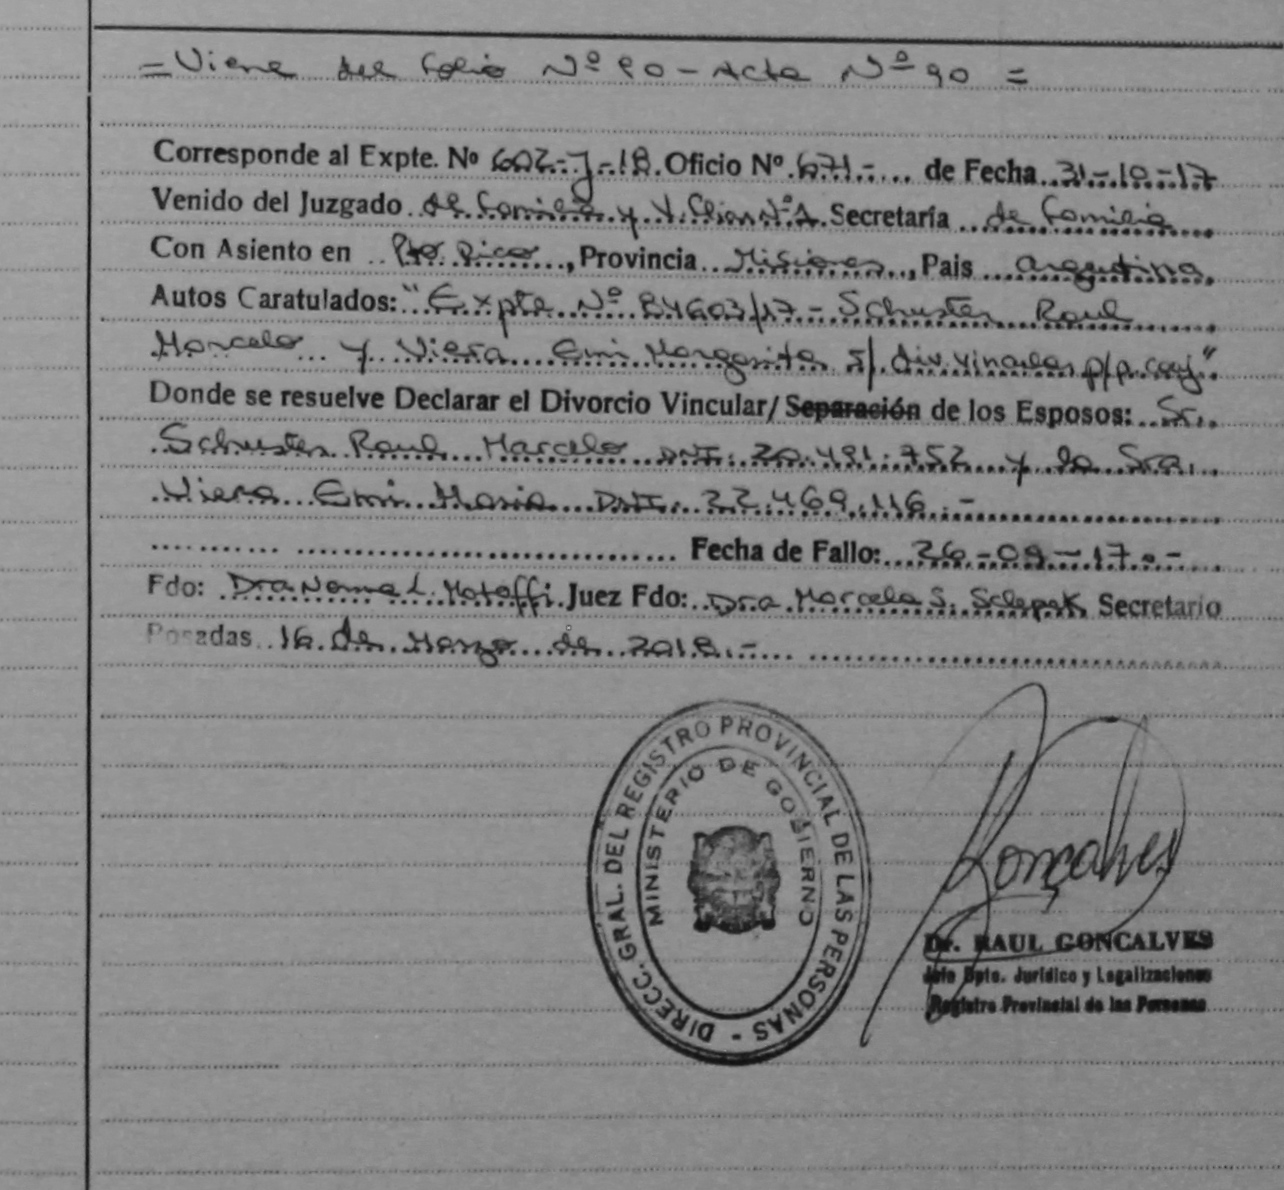 = Viene del Folio Nº 90 - Acta Nº 90 =
Corresponde al Expte. Nº 602-J-18. Oficio Nº 671.- de Fecha 31-10-17
Venido del Juzgado de Familia y V. Secretaría de Familia
Con Asiento en Pto Rico, Provincia Misiones, Pais Argentina.
Autos Caratulados: "Expte Nº 84603/17 - Schuster Raul
Marcelo y Viera Emi Margarita s/ div. vincular p/p. conj"
Donde se resuelve Declarar el Divorcio Vincular/ Separación de los Esposos: Sr.
Schuster Raul Marcelo DNI. 20.481.752 y la Sra.
Viera Emi Maria DNI. 22.469.116.-
Fecha de Fallo: 26-09-17.-
Fdo: Dra Norma L. Juez Fdo: Dra Marcela S. Secretario
Posadas 16 de Marzo de 2018.-
DIRECC. GRAL. DEL REGISTRO PROVINCIAL DE LAS PERSONAS -
MINISTERIO DE GOBIERNO
Goncalves
Dr. RAUL GONCALVES
Jefe Dpto. Jurídico y Legalizaciones
Registro Provincial de las Personas